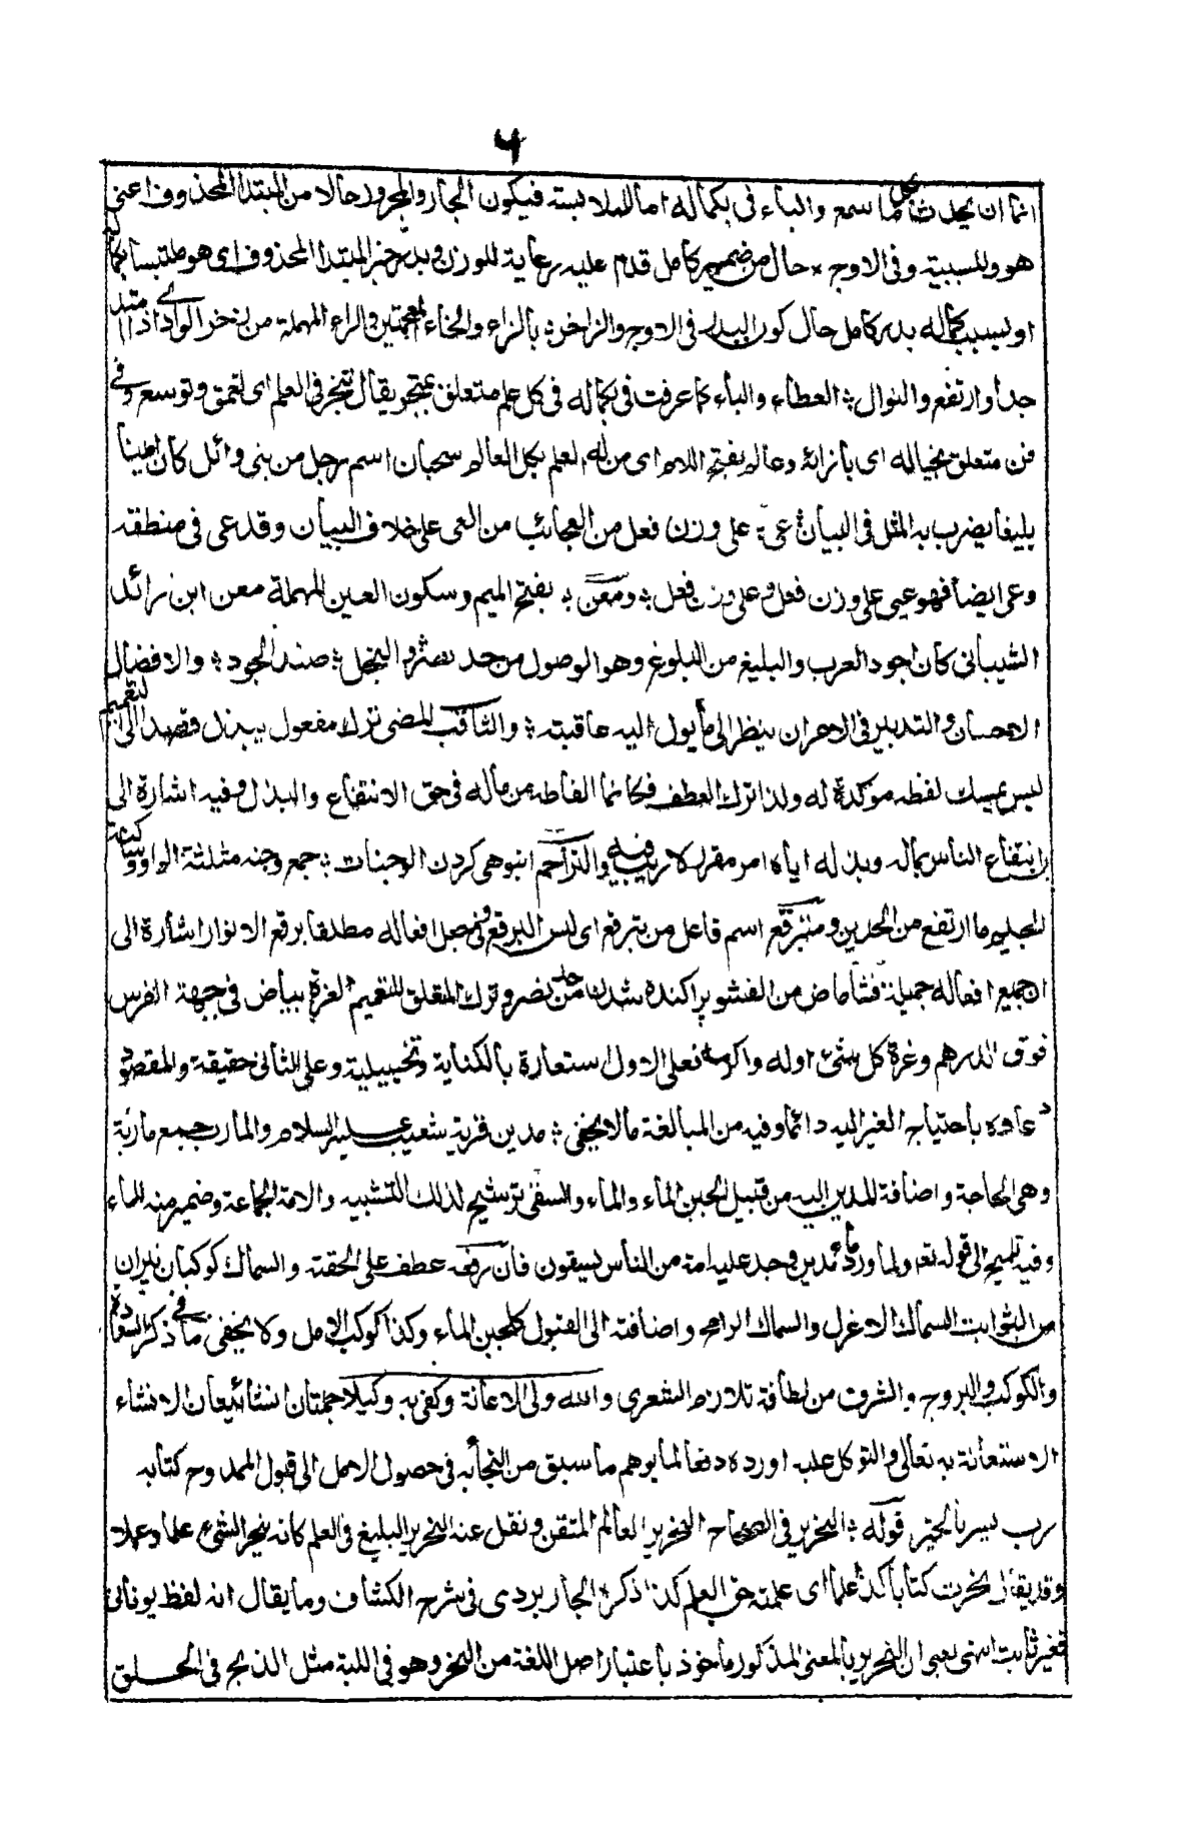 ۶
انما ان يحدث بكل ما سمع والباء فى بكماله اما للملابسة فيكون الجار والمجرور حالا من المبتدأ المحذوف اعنى
هو وللسببية وفى الاوج حال من ضمير كامل قدم عليه رعاية للوزن وبدر خبر المبتدأ المحذوف اى هو ملتبسا بكماله
او بسبب كماله بدر كامل حال كون البدر فى الاوج والزاخر بالزاء والخاء المعجمتين والراء المهملة من زخر الوادى اذا امتد
جدا وارتفع والنوال العطاء والباء كما عرفت فى بكماله فى كل علم متعلق بمتبحر يقال تبحر فى العلم اى تعمق وتوسع وفى
فن متعلق بحياله اى بازائه وعالم بفتح اللام اى من له العلم بكل العالم سحبان اسم رجل من بنى وائل كان لسينا
بليغا يضرب به المثل فى البيان عى على وزن فعل من العجائب من العى على خلاف البيان وقد عى فى منطقه
وعى ايضا فهو عيى على وزن فعل وعلى وزن فعل ومعن بفتح الميم وسكون العين المهملة معن ابن زائد
الشيبانى كان اجود العرب والبليغ من البلوغ وهو الوصول من حد نصر والبخل ضد الجود والافضال
الاحسان والتدبير فى الامر ان ينظر الى ما يول اليه عاقبته والثاقب المضى ترك مفعول يبذل قصدا الى التعميم
ليس يمسك لفظه موكدة له ولذا ترك العطف فكانما الفاظه من ماله فى حق الانتفاع والبذل وفيه اشارة الى
ان انتفاع الناس بماله وبذله اياه امر مقرر لا ريب فيه والتزاحم انبوهى كردن الوجنات جمع وجنه مثلثة الواو وساكنة
الجيم ما ارتفع من الخدين ومتبرقع اسم فاعل من تبرقع اى لبس البرقع وفى جعل افعاله مطلقا برقع الانوار اشارة الى
ان جميع افعاله جميلة فشا ماض من الفشو پراكنده شدن من حد نصر وترك المتعلق للتعميم الغرة بياض فى جبهة الفرس
فوق الدرهم وغرة كل شئ اوله واكرمه فعلى الاول استعارة بالكناية وتخييلية وعلى الثانى حقيقة والمقصود
دعاوه باحتياج الغير اليه دائما وفيه من المبالغة ما لا يخفى مدين قرية شعيب عليه السلام والمارب جمع ماربة
وهى الحاجة واضافة المدين اليه من قبيل لجين الماء والماء والسقى ترشيح لذلك التشبيه والامة الجماعة وضمير منه للماء
وفيه تلميح الى قوله تعالى ولما ورد ماء مدين وجد عليه امة من الناس يسقون فان رفعه عطف على الحقته والسماك كوكبان نيران
من الثوابت السماك الاعزل والسماك الرامح واضافته الى القبول كلجين الماء وكذا كوكب الامل ولا يخفى ما فى ذكر السعادة
والكوكب والبروج والشرف من لطافة تلازم الشعرى والله ولى الاعانة وكفى به وكيلا جملتان انشائيتان لانشاء
الاستعانة به تعالى والتوكل عليه اورده دفعا لما يوهم ما سبق من التجائه فى حصول الامل الى قبول الممدوح كتابه
رب يسر بالخير قوله النحرير فى الصحاح النحرير العالم المتقن ونقل عنه النحرير البليغ فى العلم كانه ينحر الشئ علما وعملا
وقد يقال نحرت كتابا كذا علما اى علمته حق العلم كذا ذكره الجاربردى فى شرح الكشاف وما يقال انه لفظ يونانى
فغير ثابت انتهى يعنى ان النحرير بالمعنى المذكور ماخوذ باعتبار اصل اللغة من النحر وهو فى اللبة مثل الذبح فى الحلق